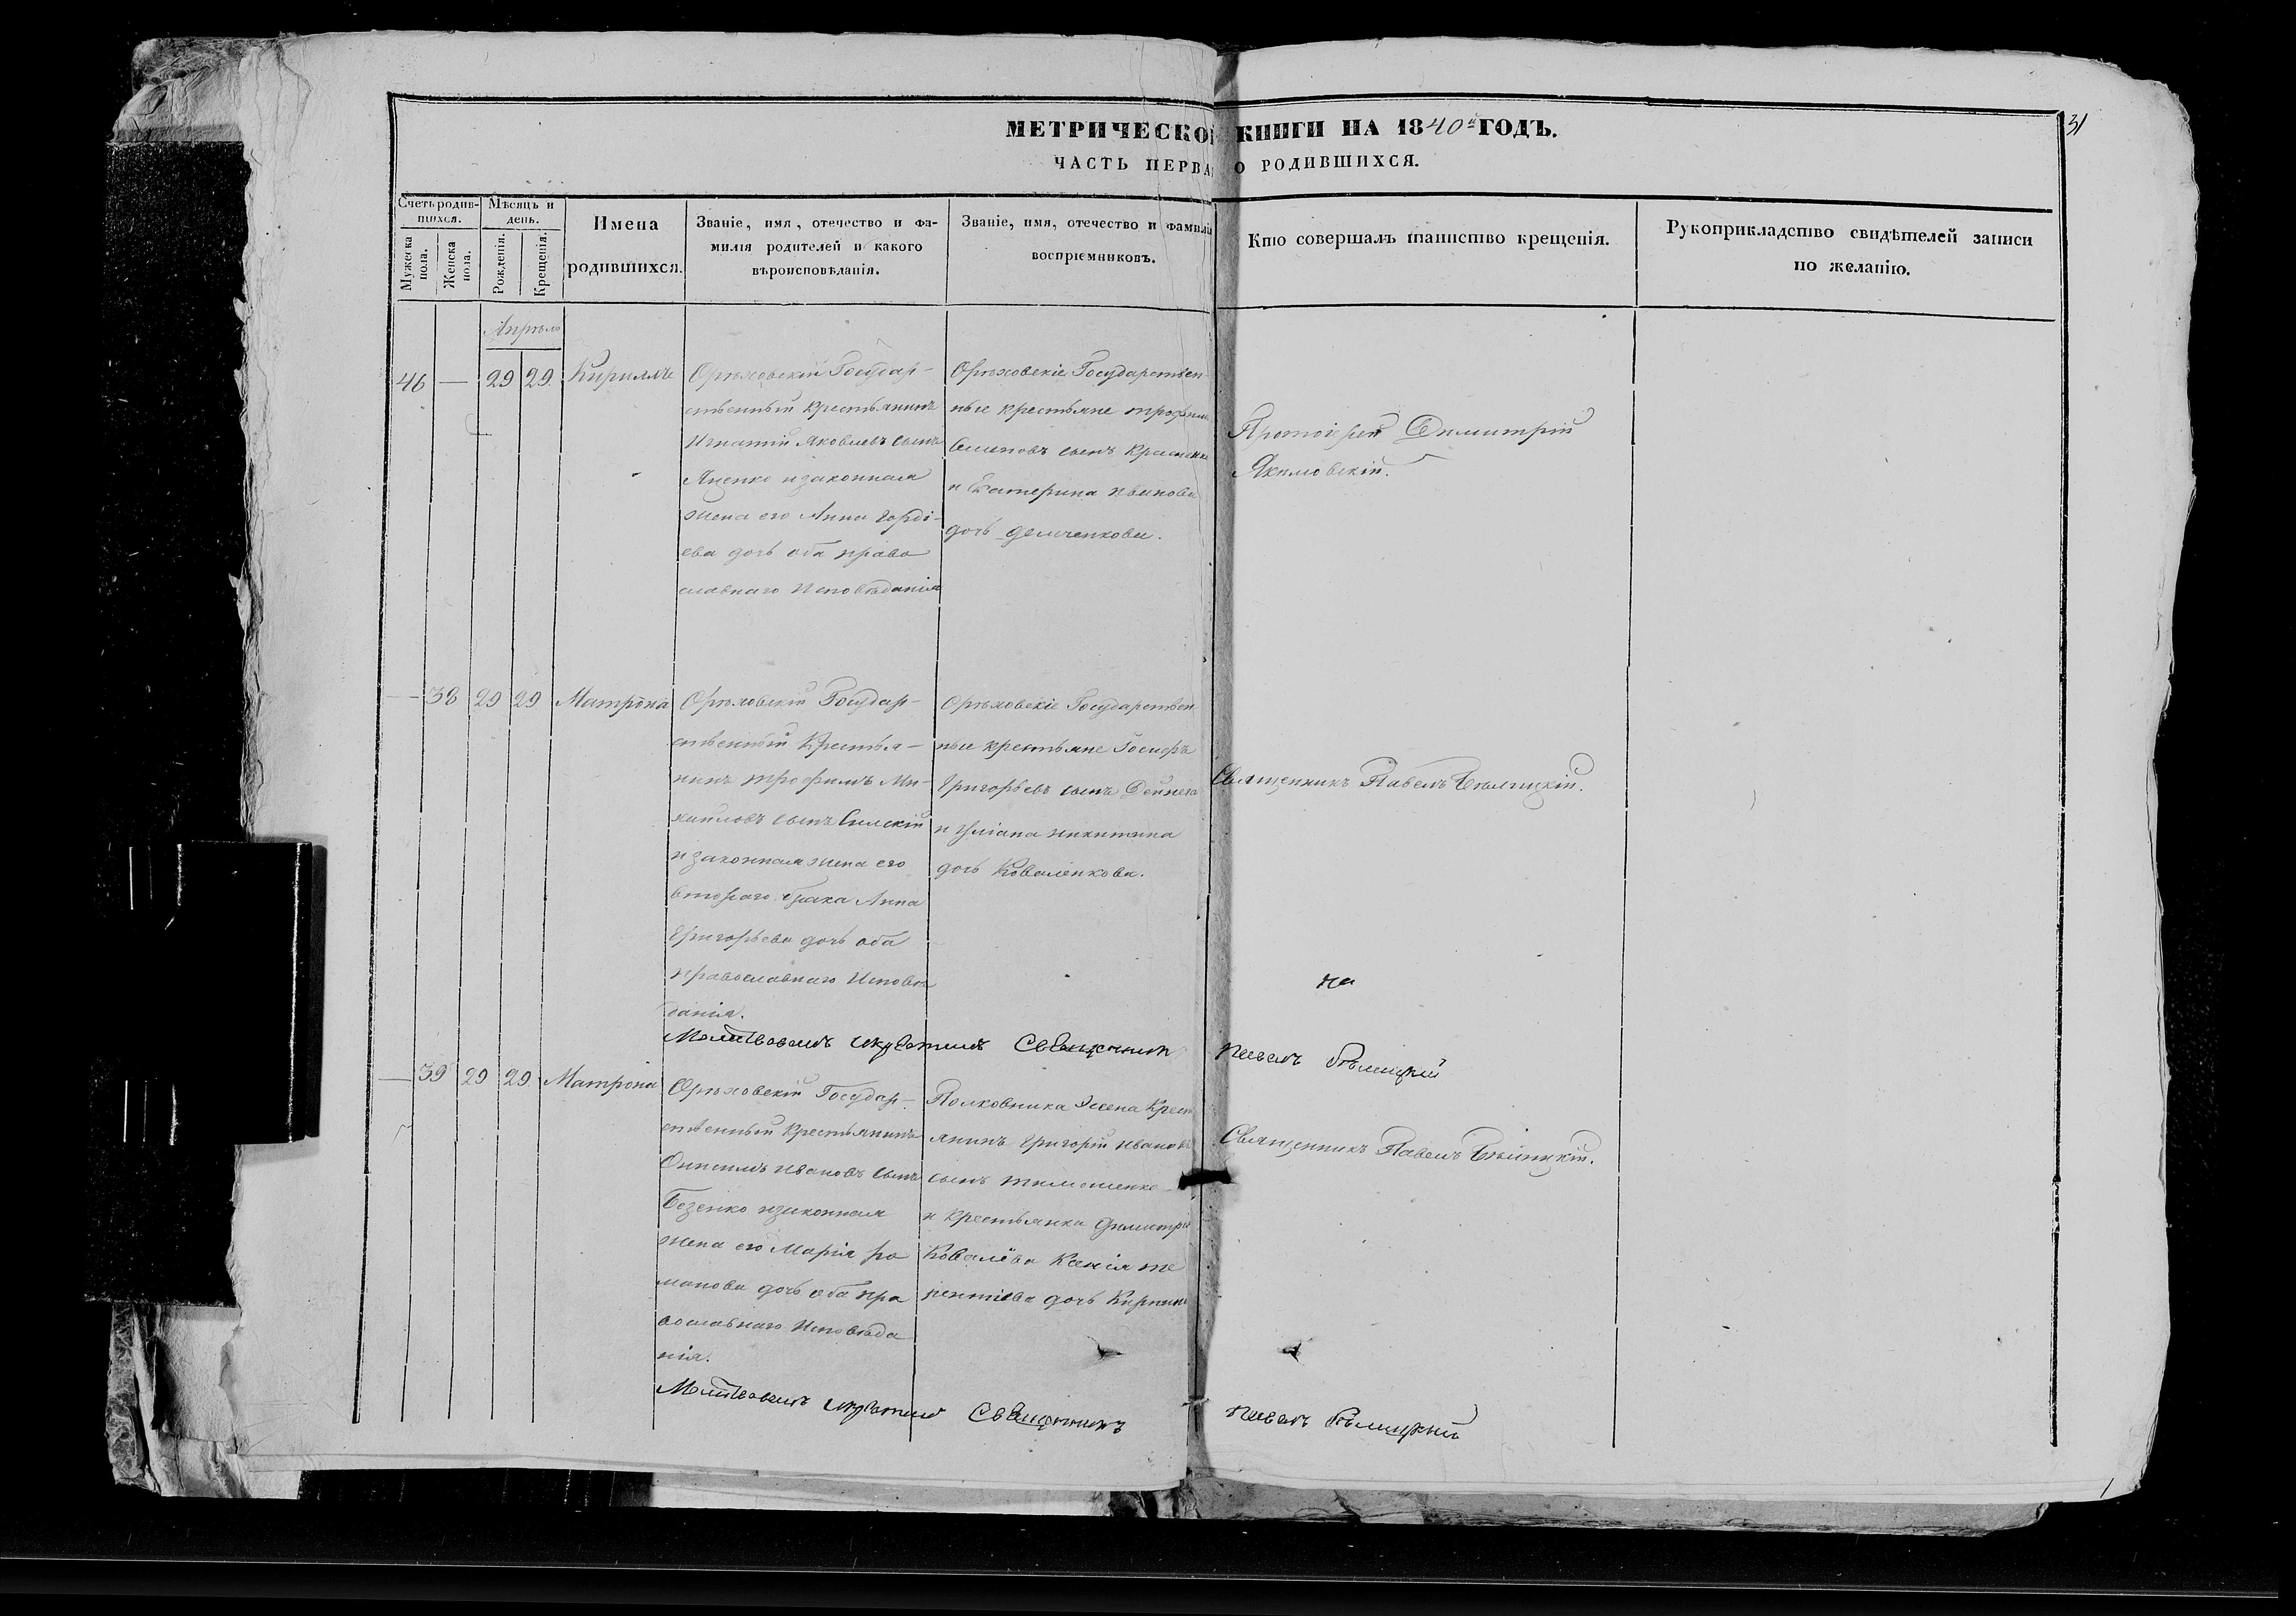 МЕТРИЧЕСКОЙ КНИГИ НА 1840й ГОДЪ.
31
ЧАСТЬ ПЕРВА О РОДИВШИХСЯ.
Счетъ родив-
шихся.
Мужеска
пола.
Женска
пола.
Мѣсяцъ и
день.
Рожденія.
Крещенія.
Имена
родившихся.
Званіе, имя, отечество и фа-
милія родителей и какого
вѣроисповѣданія.
Званіе, имя, отечество и фамилія
воспріемниковъ.
Кто совершалъ таинство крещенія.
Рукоприкладство свидѣтелей записи
по желанію.
Апрѣль
46 — 29 29 Кириллъ
Орѣховскій Государ-
ственный крестьянинъ
Игнатій Яковлевъ сынъ
Яценко и законная
жена его Анна Горді-
ева дочь оба право
славнаго Исповѣданія
Орѣховскіе Государствен-
ные крестьяне Трофимъ
Семеновъ сынъ
и Екатерина Иванова
дочь Демченкова.
Протоіерей Димитрій
Якимовскій.
— 38 29 29 Матрона
Орѣховскій Государ-
ственный Крестья-
нинъ Трофимъ Ми-
хаиловъ сынъ
и законная жена его
втораго брака Анна
Григорьева дочь оба
православнаго Исповѣ
данія.
Орѣховскіе Государствен
ные крестьяне Іосифъ
Григорьевъ сынъ Дейнега
и Уліана Никитина
дочь Коваленкова.
Священникъ Павелъ Бѣлицкій.
на
Молитвовалъ и крестилъ Священник Павелъ Бѣлицкій
— 39 29 29 Матрона
Орѣховскій Государ-
ственный крестьянинъ
Онисимъ Ивановъ сынъ
Безенко и законная
жена его Марія Ро
манова дочь оба пра
вославнаго Исповѣда
нія.
Полковника крест
янинъ Григорій Ивановъ
сынъ Тимошенко
и крестьянка Димитрія
Ковалёва Ксенія Те
рентіева дочь
Священникъ Павелъ Бѣлицкій.
Молитвовалъ и крестилъ Священникъ Павелъ Бѣлицкій